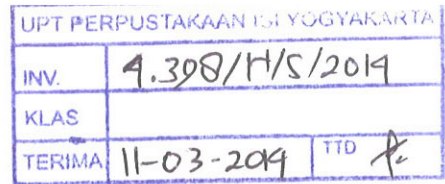 UPT PERPUSTAKAAN ISI YOGYAKARTA
INV. 4.398/H/S/2014
KLAS
TERIMA 11-03-2014 TTD